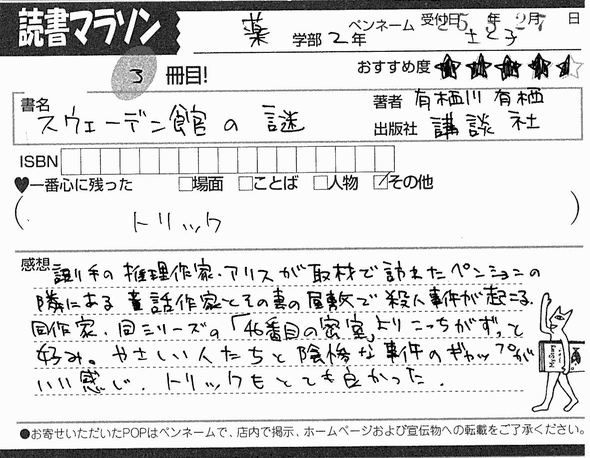 読書マラソン
薬 学部 2年 ペンネーム 受付日 25年 2月7日
3 冊目! おすすめ度
書名 スウェーデン館の謎 著者 有栖川 有栖
出版社 講談社
ISBN
♥一番心に残った □場面 □ことば □人物 ☑その他
( トリック )
感想 語り手の推理作家・アリスが取材で訪れたペンションの
隣にある童話作家とその妻の屋敷で殺人事件が起こる.
同作家、同シリーズの「46番目の密室」よりこっちがずっと
好み。やさしい人たちと陰惨な事件のギャップが
いい感じ. トリックもとても良かった.
●お寄せいただいたPOPはペンネームで、店内で掲示、ホームページおよび宣伝物への転載をご了承ください。